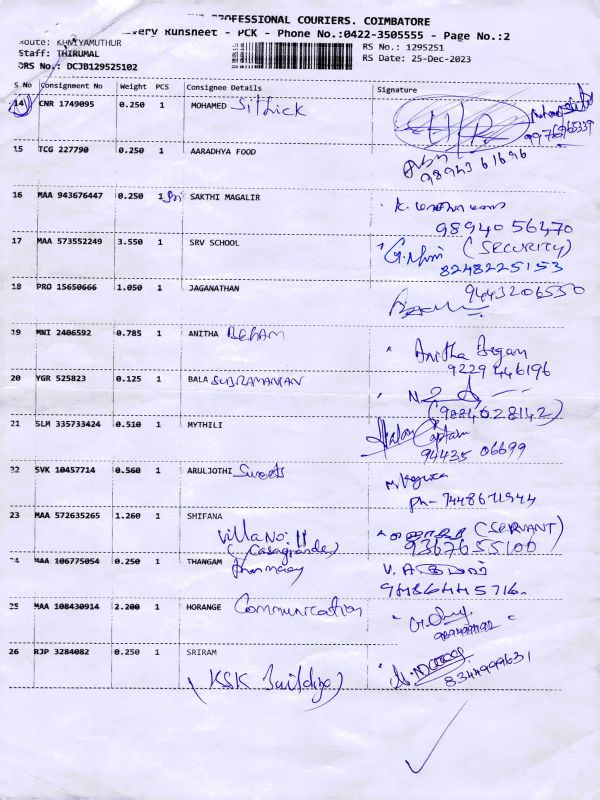 PROFESSIONAL COURIERS. COIMBATORE
Runsheet - PCK - Phone No.:0422-3505555 - Page No.:2
Route: KUNIYAMUTHUR
RS No.: 1295251
Staff: THIRUMAL
RS Date: 25-Dec-2023
DRS No.: DCJB129525102
S No Consignment No Weight PCS Consignee Details Signature
14 CNR 1749095 0.250 1 MOHAMED Sithick
9976965339
15 TCG 227790 0.250 1 AARADHYA FOOD
98943 61696
16 MAA 943676447 0.250 1 Sri SAKTHI MAGALIR
98940 56470
17 MAA 573552249 3.550 1 SRV SCHOOL (SECURITY)
8248225153
18 PRO 15650666 1.050 1 JAGANATHAN 9443206550
19 MNI 2406592 0.785 1 ANITHA BEGAM Anitha Begam
9229 446196
20 YGR 525823 0.125 1 BALA SUBRAMANIAN
(9884028142)
21 SLM 335733424 0.510 1 MYTHILI
94435 06699
22 SVK 10457714 0.560 1 ARULJOTHI Sweets
Ph- 7448671944
23 MAA 572635265 1.260 1 SHIFANA (SERVANT)
Villa No: 11 9367655100
(Casagrande)
24 MAA 106775054 0.250 1 THANGAM Pharmacy
9486445716
25 MAA 108430914 2.200 1 HORANGE Communication
26 RJP 3284082 0.250 1 SRIRAM
8344999631
(KSK Building)